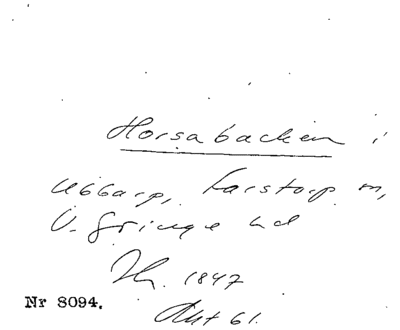 Horsabacken i
Ubbarp, Farstorp sn,
V. Göinge hd
1847
Nr 8094.
Akt 61.